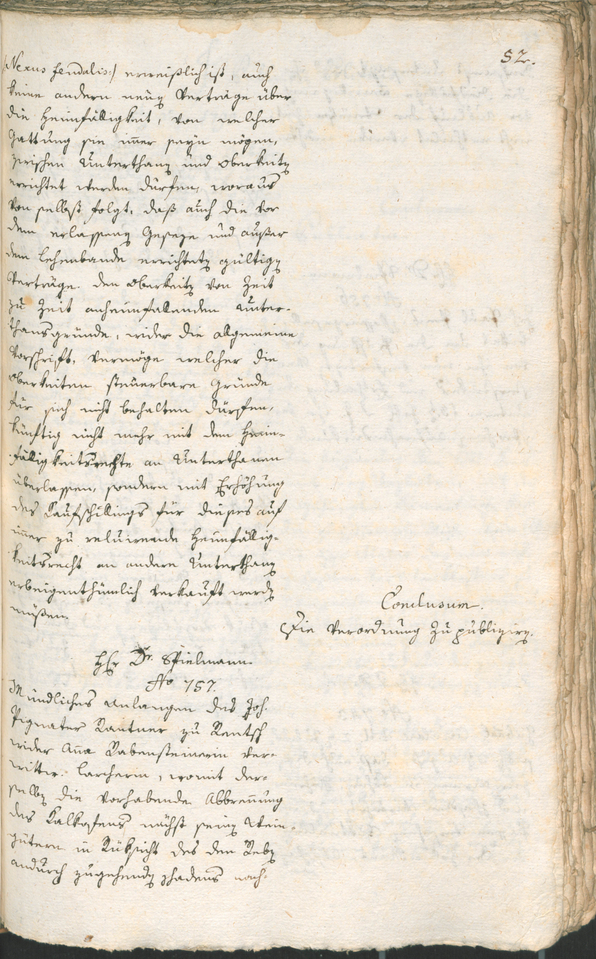 52.
(Nexus feudalis:) erweißlich ist, auch
keine andern neuen Verträge über
die Heimfälligkeit, von welcher
Gattung sie immer seyn mögen,
zwischen Unterthanen und Oberkeiten
errichtet werden dürfen, woraus
von selbst folgt, daß auch die vor
dem erlassenen Geseze und außer
dem Lehenbande errichteten gültigen
Verträge den Oberkeiten von Zeit
zu Zeit anheimfallenden Unter-
thansgründe, wider die allgemeine
Vorschrift, vermöge welcher die
Oberkeiten steuerbare Gründe
für sich nicht behalten dürfen,
künftig nicht mehr mit dem Heim-
fälligkeitsrechte an Unterthanen
überlassen, sondern mit Erhöhung
des Kaufschillings für dieses auf
immer zu reluirende Heimfällig-
keitsrecht an andere Unterthanen
erbeigenthümlich verkauft werden
müßen.
Conclusum.
Die Verordnung zu publiziren.
Hr. Dr. Spielmann.
No 757.
Mündliches Anlangen des Joh.
Pignater Kantner zu Rentsch
wider Anna Rabensteinerin ver-
wittw. Larcherin, womit der-
selben die vorhabende Abbrennung
des Kalkofens nächst seinen Wein-
gütern in Rüksicht des den Reben
andurch zugehenden Schadens noch-